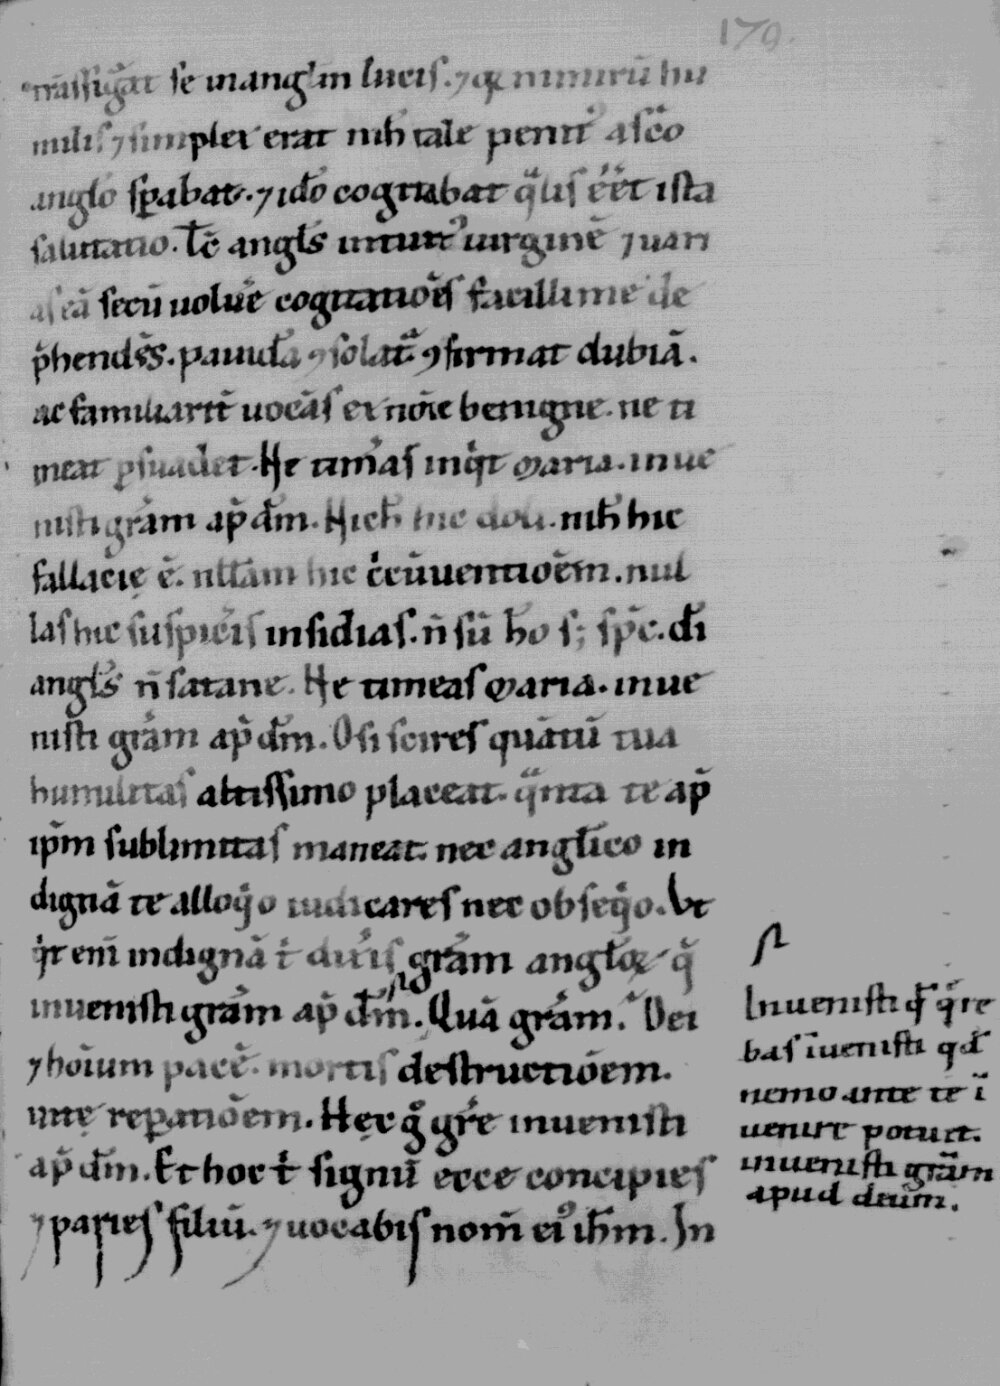 179.
trāssfiḡat se in angl̄m lucis. ⁊ q̄ nimirū hu
milis ⁊ simplex erat nich̄ tale penit᾽ a sc̄o
anglo sp̄abat. ⁊ ido cogitabat qͣlis eēt ista
salutatio. Tc̄ angl̄s intuit᾽ uirginē ⁊ uari
as eā secū uoluē cogitatiōes facillime de
p̄hendēs. pauidā ꝯsolat̄ ꝯfirmat dubiā.
ac familiarit̄ uocās ex noīe benigne. ne ti
meat p̄suadet. Ne timeas inqͥt maria. inue
nisti grām ap̄ dm̄. Nich̄ hic doli. nich̄ hic
fallacię ē. nullam hic cͥcūuentiōem. nul
las hic suspiceris insidias. n̄ sū ho s; sp̄c. dī
angl̄s n̄ satane. Ne timeas maria. inue
nisti grām ap̄ dm̄. O si scires quātū tua
humilitas altissimo placeat. qͣnta te ap̄
ip̄m sublimitas maneat. nec anglico in
dignā te alloqͥo iudicares nec obseqͥo. Vt
qͥt enī indignā t̄ duc̄is grām angloꝝ q̄
inuenisti grām ap̄ dm̄. Quā grām. Dei
⁊ hoīum pacē. mortis destructiōem.
uitę reparatiōem. Hęc g̊ grē inuenisti
ap̄ dm̄. Et hoc t̄ signū ecce concipies
⁊ paries filiū. ⁊ uocabis nom̄ ei᾽ ih̄m. In
Inuenisti qd̄ qͣre
bas īuenisti qd̄
nemo ante te ī
uenire potuit.
inuenisti grām
apud deum.